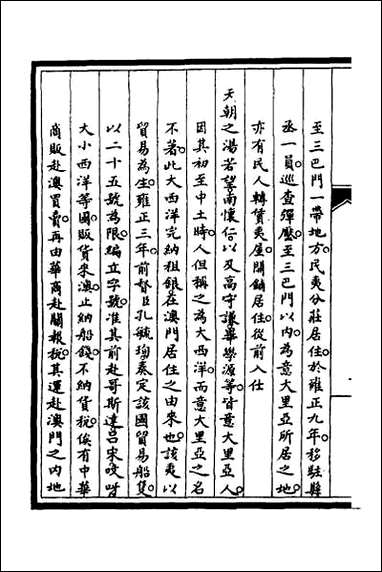 至三巴門一帶地方民夷分莊居住於雍正九年移駐縣
丞一員巡查彈壓至三巴門以内為意大里亞所居之地
亦有民人轉賃夷屋開鋪居住從前入仕
天朝之湯若望南懷仁以及高守謙畢學源等皆意大里亞人
因其初至中土時人但稱之為大西洋而意大里亞之名
不著此大西洋完納租銀在澳門居住之由來也該夷以
貿易為生雍正三年前督臣孔毓珣奏定該國貿易船隻
以二十五號為限編立字號准其前赴哥斯達呂宋咬𠺕
大小西洋等國販貨來澳止納船鈔不納貨稅俟有中華
商販赴澳買賣再由華商赴關報稅其運赴澳門之内地